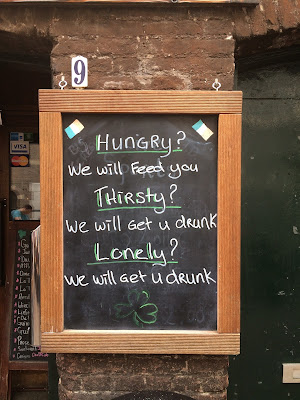 9
VISA
Hungry?
We will Feed you
Thirsty?
We will Get u drunk
Lonely?
We will Get u drunk